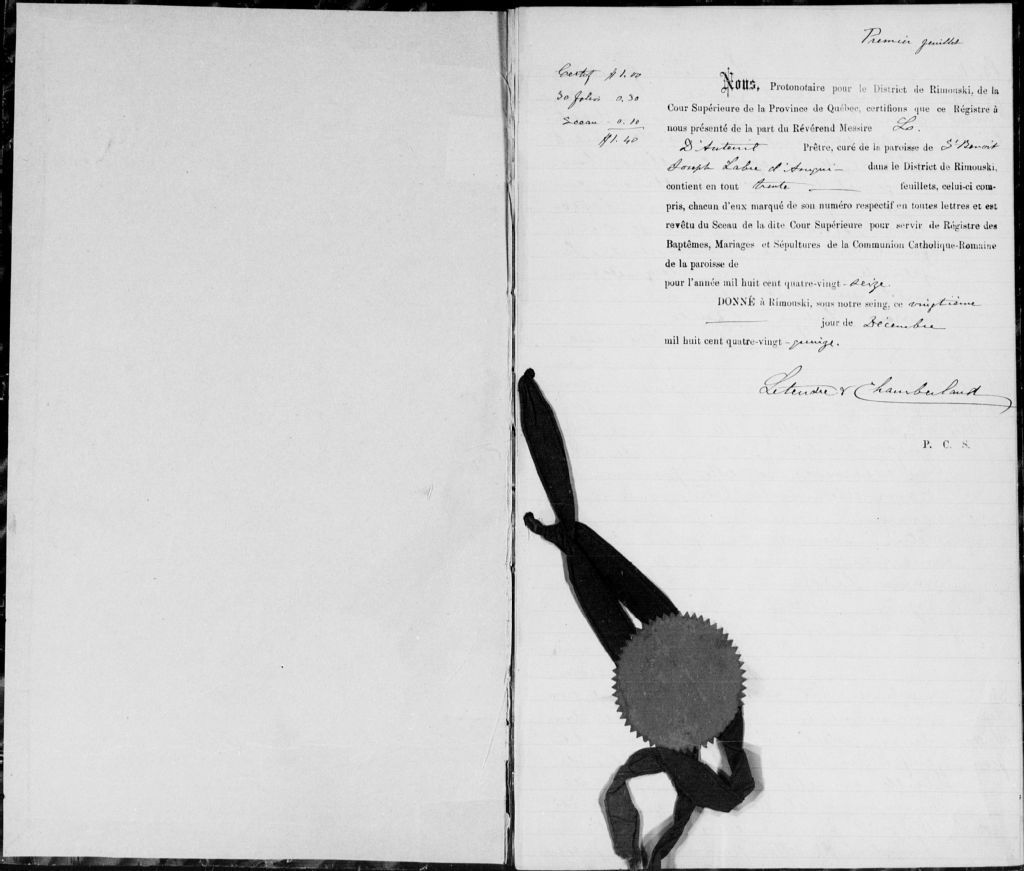 Premier feuillet
Certif $1.00
30 folios 0.30
Sceau - 0.10
$1.40
Nous, Protonotaire pour le District de Rimouski, de la
Cour Supérieure de la Province de Québec, certifions que ce Régistre à
nous présenté de la part du Révérend Messire L.
D'Auteuil Prêtre, curé de la paroisse de St Benoit
Joseph Labre d'Amqui - dans le District de Rimouski,
contient en tout trente feuillets, celui-ci com-
pris, chacun d'eux marqué de son numéro respectif en toutes lettres et est
revêtu du Sceau de la dite Cour Supérieure pour servir de Régistre des
Baptêmes, Mariages et Sépultures de la Communion Catholique-Romaine
de la paroisse de
pour l'année mil huit cent quatre-vingt-seize.
DONNÉ à Rimouski, sous notre seing, ce vingtième
jour de Décembre
mil huit cent quatre-vingt-quinze.
Letendre & Chamberland
P. C. S.